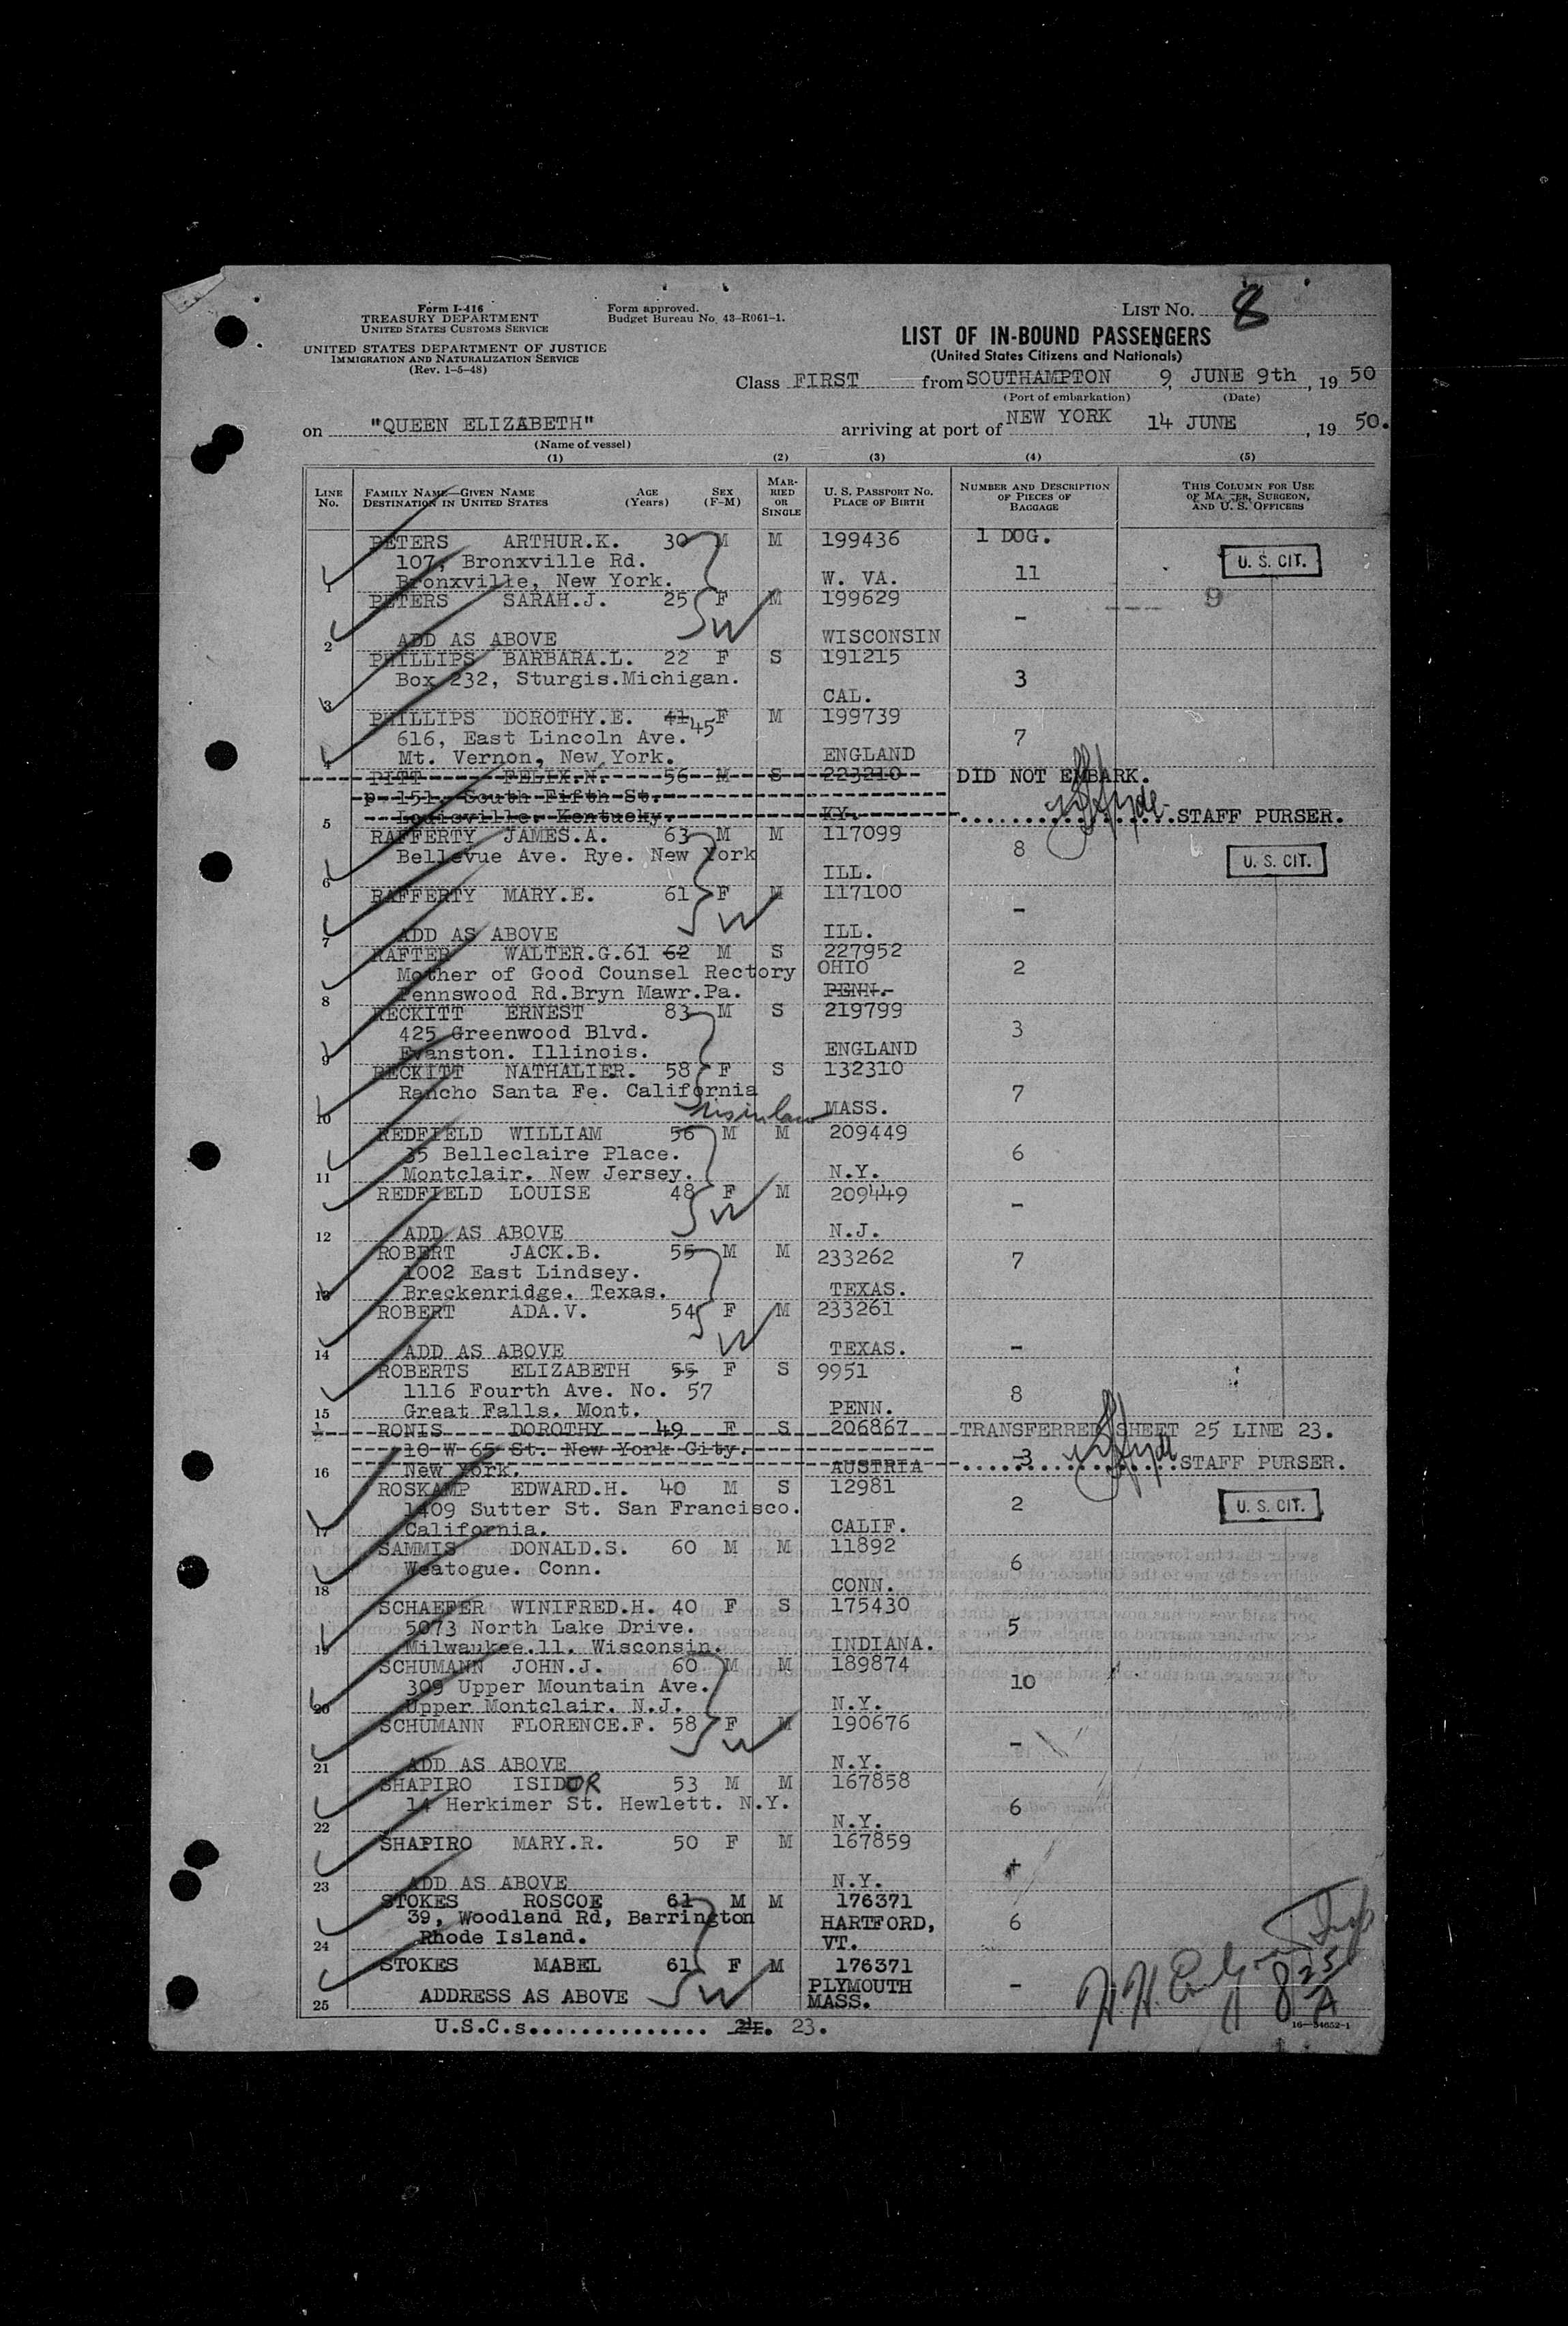 Form I-416
TREASURY DEPARTMENT
UNITED STATES CUSTOMS SERVICE
UNITED STATES DEPARTMENT OF JUSTICE
IMMIGRATION AND NATURALIZATION SERVICE
(Rev. 1-5-48)
Form approved.
Budget Bureau No. 43-R061-1.
LIST NO. 8
LIST OF IN-BOUND PASSENGERS
(United States Citizens and Nationals)
Class FIRST from SOUTHAMPTON 9, JUNE 9th, 19 50
(Port of embarkation) (Date)
on "QUEEN ELIZABETH" arriving at port of NEW YORK 14 JUNE, 19 50.
(Name of vessel)
(1) (2) (3) (4) (5)
LINE NO. FAMILY NAME—GIVEN NAME DESTINATION IN UNITED STATES AGE (YEARS) SEX (F-M) MARRIED OR SINGLE U. S. PASSPORT NO. PLACE OF BIRTH NUMBER AND DESCRIPTION OF PIECES OF BAGGAGE THIS COLUMN FOR USE OF MASTER, SURGEON, AND U. S. OFFICERS
PETERS ARTHUR.K. 30 M M 199436 1 DOG.
107, Bronxville Rd. U. S. CIT.
1 Bronxville, New York. W. VA. 11
PETERS SARAH.J. 25 F M 199629 9
W -
2 ADD AS ABOVE WISCONSIN
PHILLIPS BARBARA.L. 22 F S 191215
Box 232, Sturgis.Michigan. 3
3 CAL.
PHILLIPS DOROTHY.E. 41 45 F M 199739
616, East Lincoln Ave. 7
4 Mt. Vernon, New York. ENGLAND
PITT FELIX.N. 56 M S 223210 DID NOT EMBARK.
p 151, South Fifth St.
5 Louisville. Kentucky. KY. STAFF PURSER.
RAFFERTY JAMES.A. 63 M M 117099
Bellevue Ave. Rye. New York 8 U. S. CIT.
6 ILL.
RAFFERTY MARY.E. 61 F M 117100
W -
7 ADD AS ABOVE ILL.
RAFTER WALTER.G.61 62 M S 227952
Mother of Good Counsel Rectory OHIO 2
8 Pennswood Rd.Bryn Mawr.Pa. PENN.
RECKITT ERNEST 83 M S 219799
425 Greenwood Blvd. 3
9 Evanston. Illinois. ENGLAND
RECKITT NATHALIER. 58 F S 132310
Rancho Santa Fe. California 7
10 MASS.
REDFIELD WILLIAM 56 M M 209449
35 Belleclaire Place. 6
11 Montclair. New Jersey. N.Y.
REDFIELD LOUISE 48 F M 209449
W -
12 ADD AS ABOVE N.J.
ROBERT JACK.B. 55 M M 233262 7
1002 East Lindsey.
13 Breckenridge. Texas. TEXAS.
ROBERT ADA.V. 54 F M 233261
W
14 ADD AS ABOVE TEXAS. -
ROBERTS ELIZABETH 55 F S 9951
1116 Fourth Ave. No. 57 8
15 Great Falls. Mont. PENN.
RONIS DOROTHY 49 F S 206867 TRANSFERRED SHEET 25 LINE 23.
10 W 65 St. New York City.
16 New York. AUSTRIA 3 STAFF PURSER.
ROSKAMP EDWARD.H. 40 M S 12981
1409 Sutter St. San Francisco. 2 U. S. CIT.
17 California. CALIF.
SAMMIS DONALD.S. 60 M M 11892
Weatogue. Conn. 6
18 CONN.
SCHAEFER WINIFRED.H. 40 F S 175430
5073 North Lake Drive. 5
19 Milwaukee.11. Wisconsin. INDIANA.
SCHUMANN JOHN.J. 60 M M 189874
309 Upper Mountain Ave. 10
20 Upper Montclair. N.J. N.Y.
SCHUMANN FLORENCE.F. 58 F M 190676
W -
21 ADD AS ABOVE N.Y.
SHAPIRO ISIDOR 53 M M 167858
14 Herkimer St. Hewlett. N.Y. 6
22 N.Y.
SHAPIRO MARY.R. 50 F M 167859
23 ADD AS ABOVE N.Y.
STOKES ROSCOE 61 M M 176371
39, Woodland Rd, Barrington HARTFORD, 6
24 Rhode Island. VT.
STOKES MABEL 61 F M 176371
W PLYMOUTH -
25 ADDRESS AS ABOVE MASS.
U.S.C.s............... 24. 23.
16—54652-1